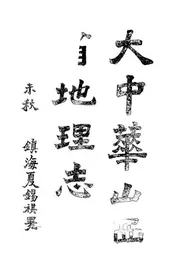 大中華山西
地理志
未秋
鎮海夏錫祺署